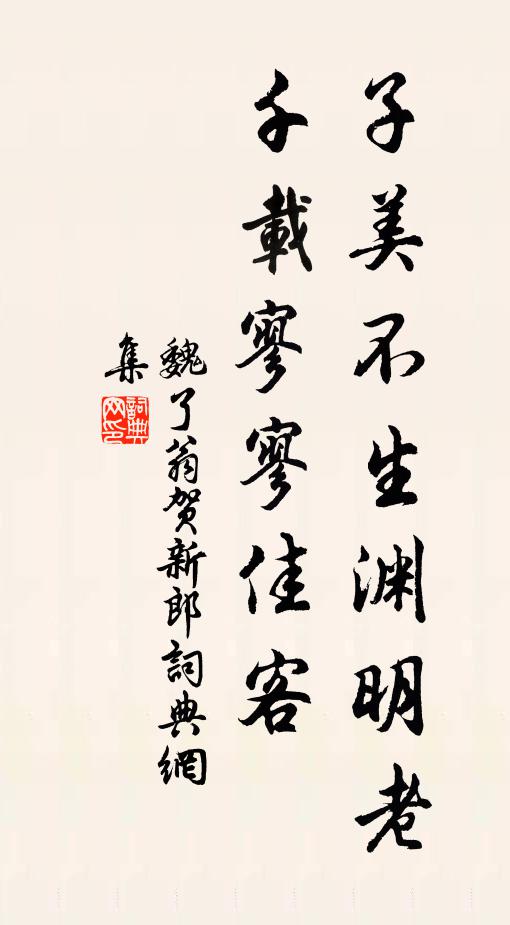 子美不生渊明老
千載寥寥佳客
魏了翁賀新郎詞典網
集
詞典网印